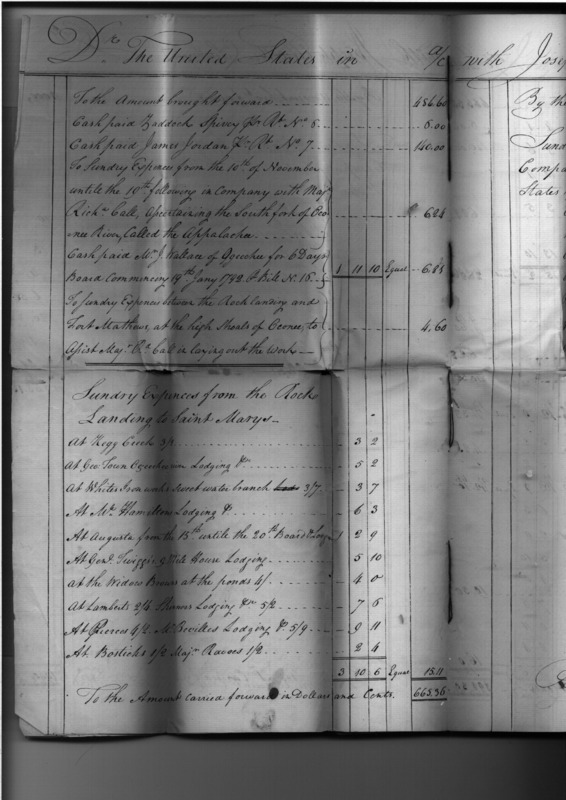 Dr. The United States in a/c with Josep
To the Amount brought forward 456.60
Cash paid Zaddock Spivey Pr. Rt. No 6. 5.00
Cash paid James Jordan Pr. Rt. No 7. 140.00
To Sundry Expences from the 10th of November
untile the 19th following in Company with Majr
Richd. Call, Ascertaining the South fork of Oco
nee River, Called the Appalacha 62 4
Cash paid Mr. J. Wallace of Ogechee for 6 Days
Board Commencg 19th Jany 1792 Pr Bill No. 15. 1 11 10 Equal 6.81
To Sundry Expences between the Rock landing and
Fort Mathews, at the high Shoals of Oconee, to
Assist Majr. Rd. Call in laying out the Work 4.60
Sundry Expences from the Rock
Landing to Saint Marys
At Kegg Creek 3/2 3 2
At Geo Town Ogechee Lodging &c 5 2
At Whites Iron works Sweet water branch 3/7 3 7
At Mr. Hamiltons Lodging &c 6 3
At Augusta from the 18th untile the 20th Board & Lodg 1 2 9
At Genl. Twiggs's 9 Mile House Lodging 5 10
At the Widow Browns at the ponds 4/ 4 0
At Lamberts 2/4 Lodging &c 5/2 7 6
At Pierces 4/2 Mr. Bevilles Lodging &c 5/9 9 11
At Bosticks 1/2 Majr. Ravoes 1/2 2 4
3 10 6 Equal 15.11
To the Amount carried forward in Dollars and Cents. 665.36
By the
Sund
Compa
States